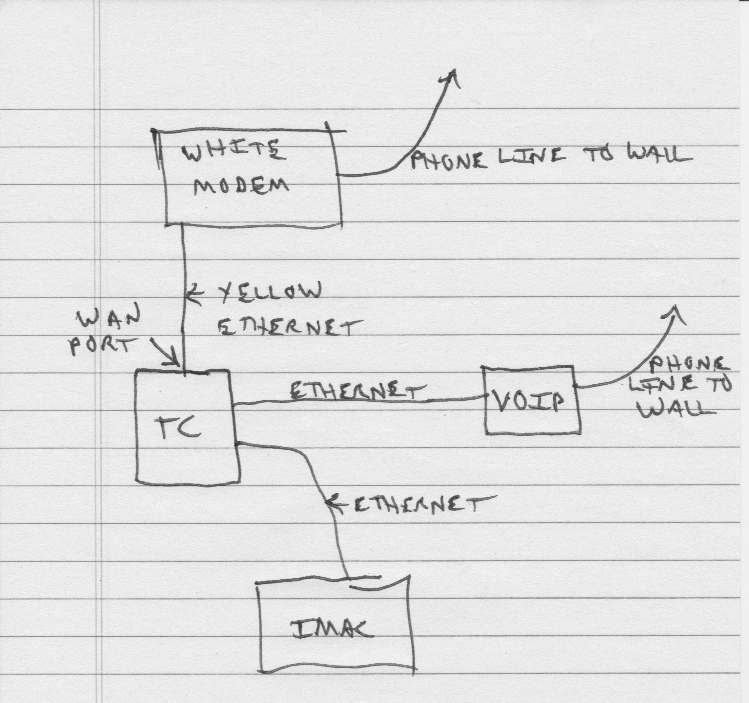 WHITE
MODEM
PHONE LINE TO WALL
YELLOW
ETHERNET
WAN
PORT
TC
ETHERNET
VOIP
PHONE
LINE TO
WALL
ETHERNET
IMAC